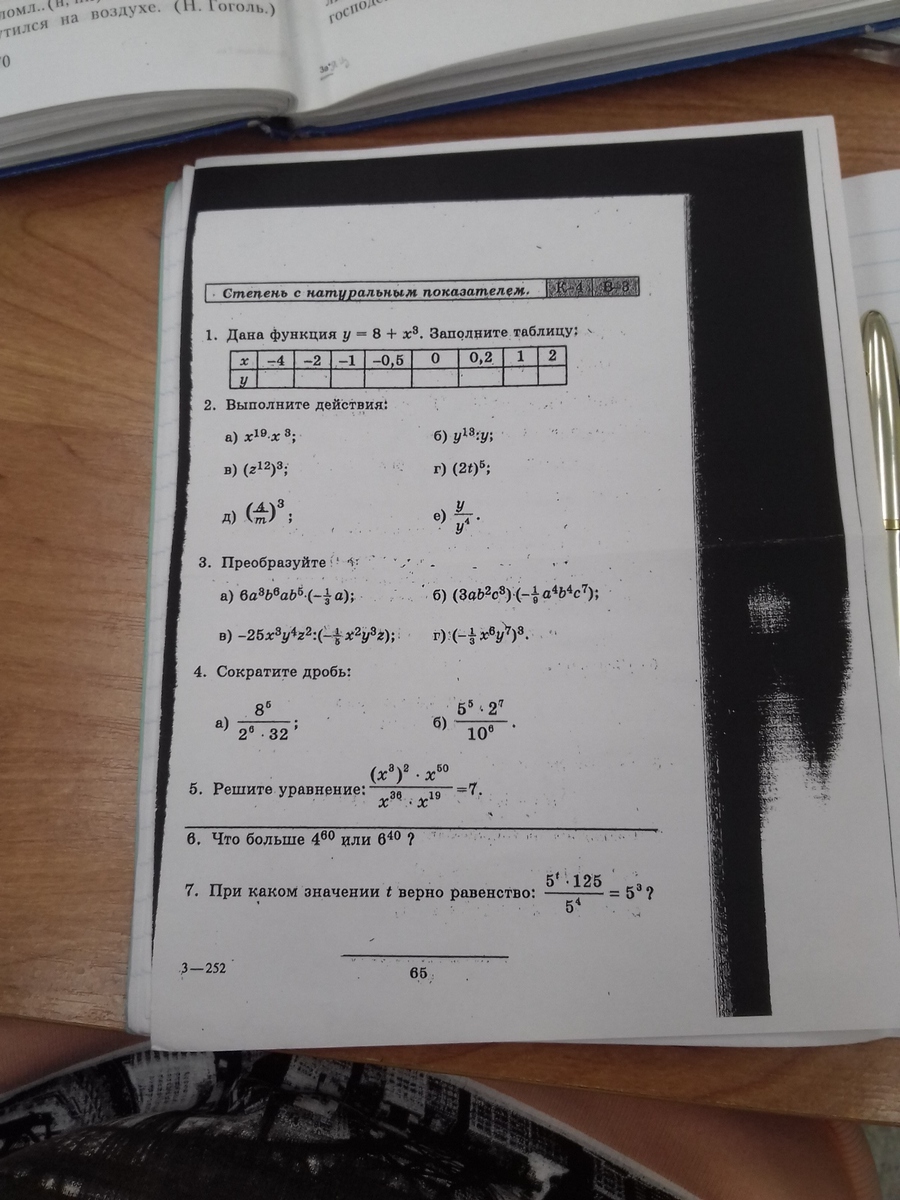 тился на воздухе. (Н. Гоголь.)
господ
Степень с натуральным показателем. К-4 В-3
1. Дана функция y = 8 + x³. Заполните таблицу:
x −4 −2 −1 −0,5 0 0,2 1 2
y
2. Выполните действия:
а) x¹⁹·x ³; б) y¹³:y;
в) (z¹²)³; г) (2t)⁵;
д) (4/m)³; е) y/y⁴.
3. Преобразуйте
а) 6a³b⁶ab⁵·(−1/3 a); б) (3ab²c³)·(−1/9 a⁴b⁴c⁷);
в) −25x³y⁴z²:(−1/5 x²y³z); г) (−1/3 x⁶y⁷)³.
4. Сократите дробь:
а) 8⁵/(2⁶ · 32); б) (5⁵ · 2⁷)/10⁶.
5. Решите уравнение: ((x³)² · x⁵⁰)/(x³⁶ · x¹⁹) =7.
6. Что больше 4⁶⁰ или 6⁴⁰ ?
7. При каком значении t верно равенство: (5ᵗ · 125)/5⁴ = 5³ ?
3—252
65